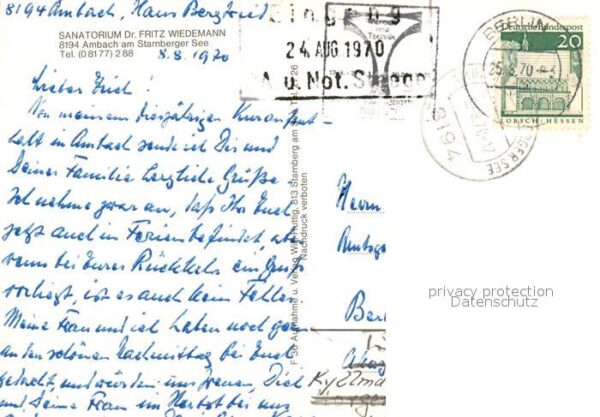 8194 Ambach, Haus Bergfried
SANATORIUM Dr. FRITZ WIEDEMANN
8194 Ambach am Starnberger See
Tel. (08177) 288
8.8.1970
Lieber Erich!
Von meinem diesjährigen Kuraufent-
halt in Ambach sende ich Dir und
Deiner Familie herzliche Grüße
Ich nehme zwar an, daß Ihr Euch
jetzt auch in Ferien befindet, ab
wenn bei Eurer Rückkehr ein Gruß
vorliegt, ist es auch kein Fehler.
Meine Frau und ich haben noch ger
an den schönen Nachmittag bei Euch
gedacht, und würden uns freuen, Dich
und Deine Frau im Herbst bei uns
Eingang
24. AUG 1970
A. u. Not.
BERLIN
25.8.70
8194
Deutsche Bundespost
20
LORSCH/HESSEN
Aufnahme u. Verlag Wilh. 813 Starnberg am
Nachdruck verboten
Herrn
Amtsge
Berl
Kyllma
privacy protection
Datenschutz